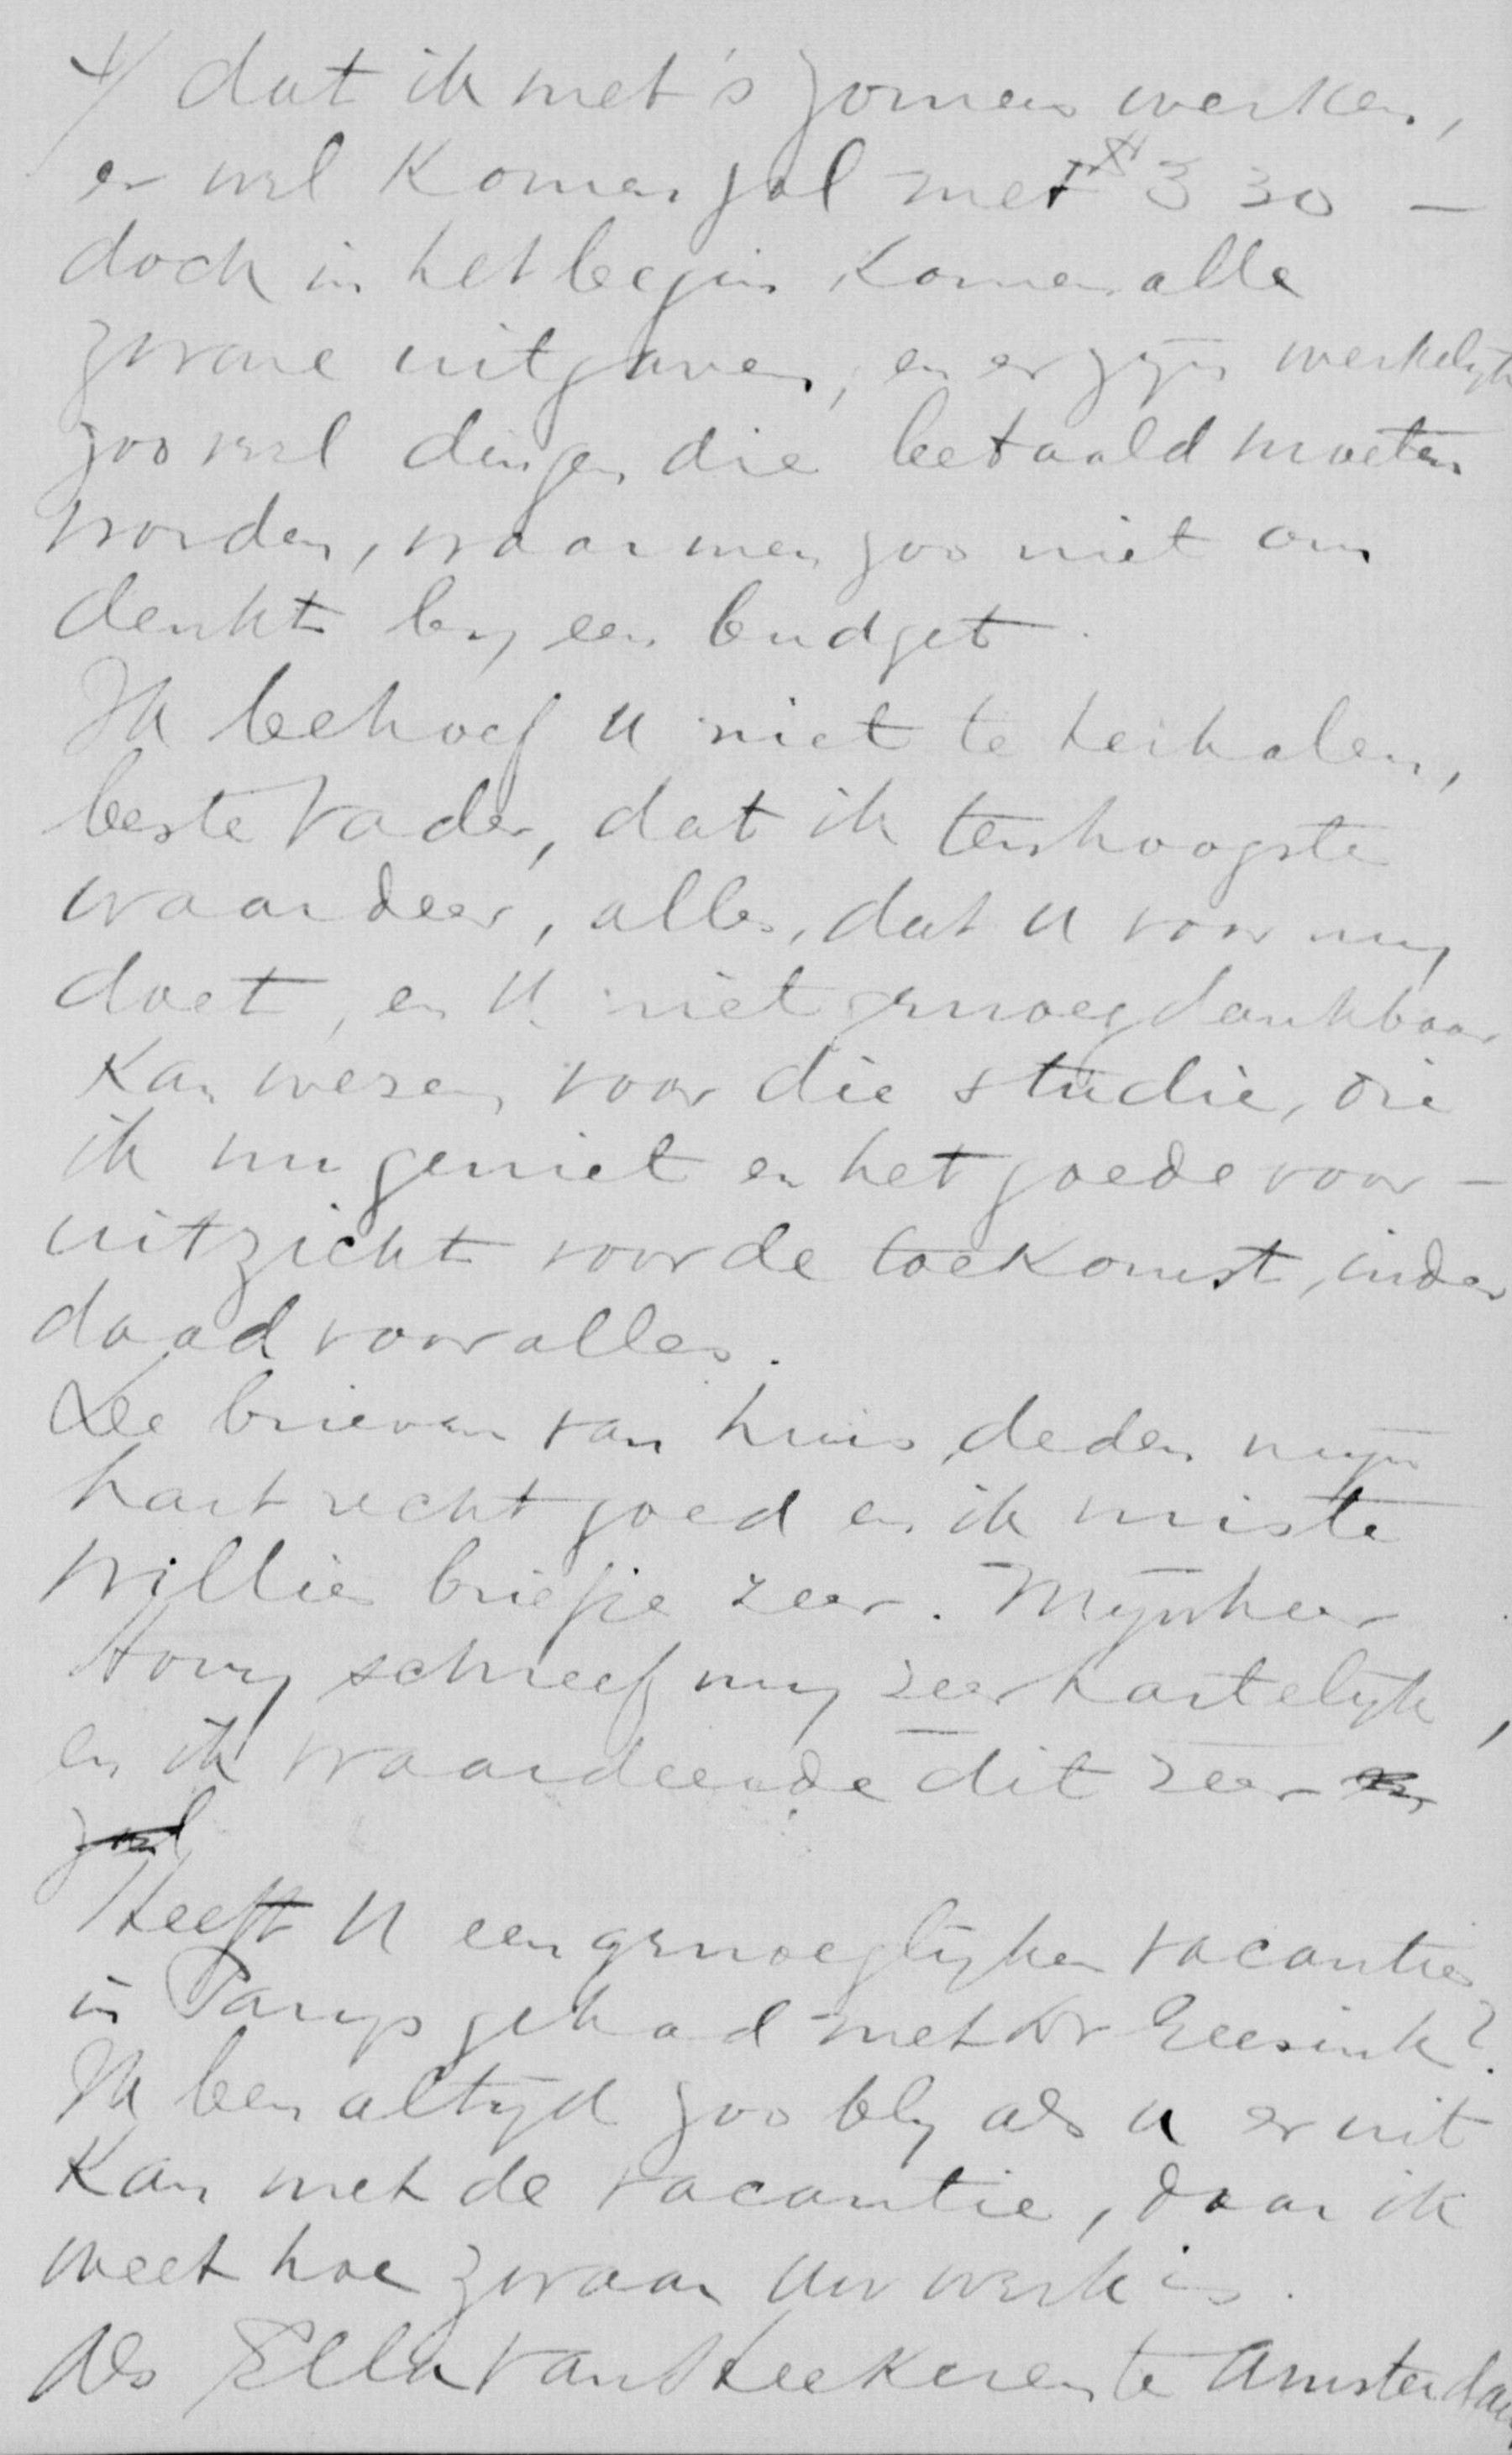 4/ dat ik met 's zomers werken,
er wel komen zal met $ 330 –
doch in het begin komen alle
zware uitgaven, en er zijn werkelijk
zooveel dingen die betaald moeten
worden, waar men zoo niet om
denkt bij een budget.
Ik behoef U niet te herhalen,
beste Vader, dat ik tenhoogste
waardeer, alles, dat U voor mij
doet, en U niet genoeg dankbaar
kan wezen, voor die studie, die
ik nu geniet en het goede voor-
uitzicht voor de toekomst, inder
daad voor alles.
De brieven van huis, deden mijn
hart recht goed en ik miste
Willies briefje zeer. Mijnheer
Hovy schreef mij zeer hartelijk,
en ik waardeerde dit zeer en
zeel
Heeft U een genoeglijken vacantie
in Parijs gehad met Dr Geesink?
Ik ben altijd zoo blij als U er uit
kan met de vacantie, daar ik
weet hoe zwaar Uw werk is.
Als Ella van Heekeren te Amsterdam